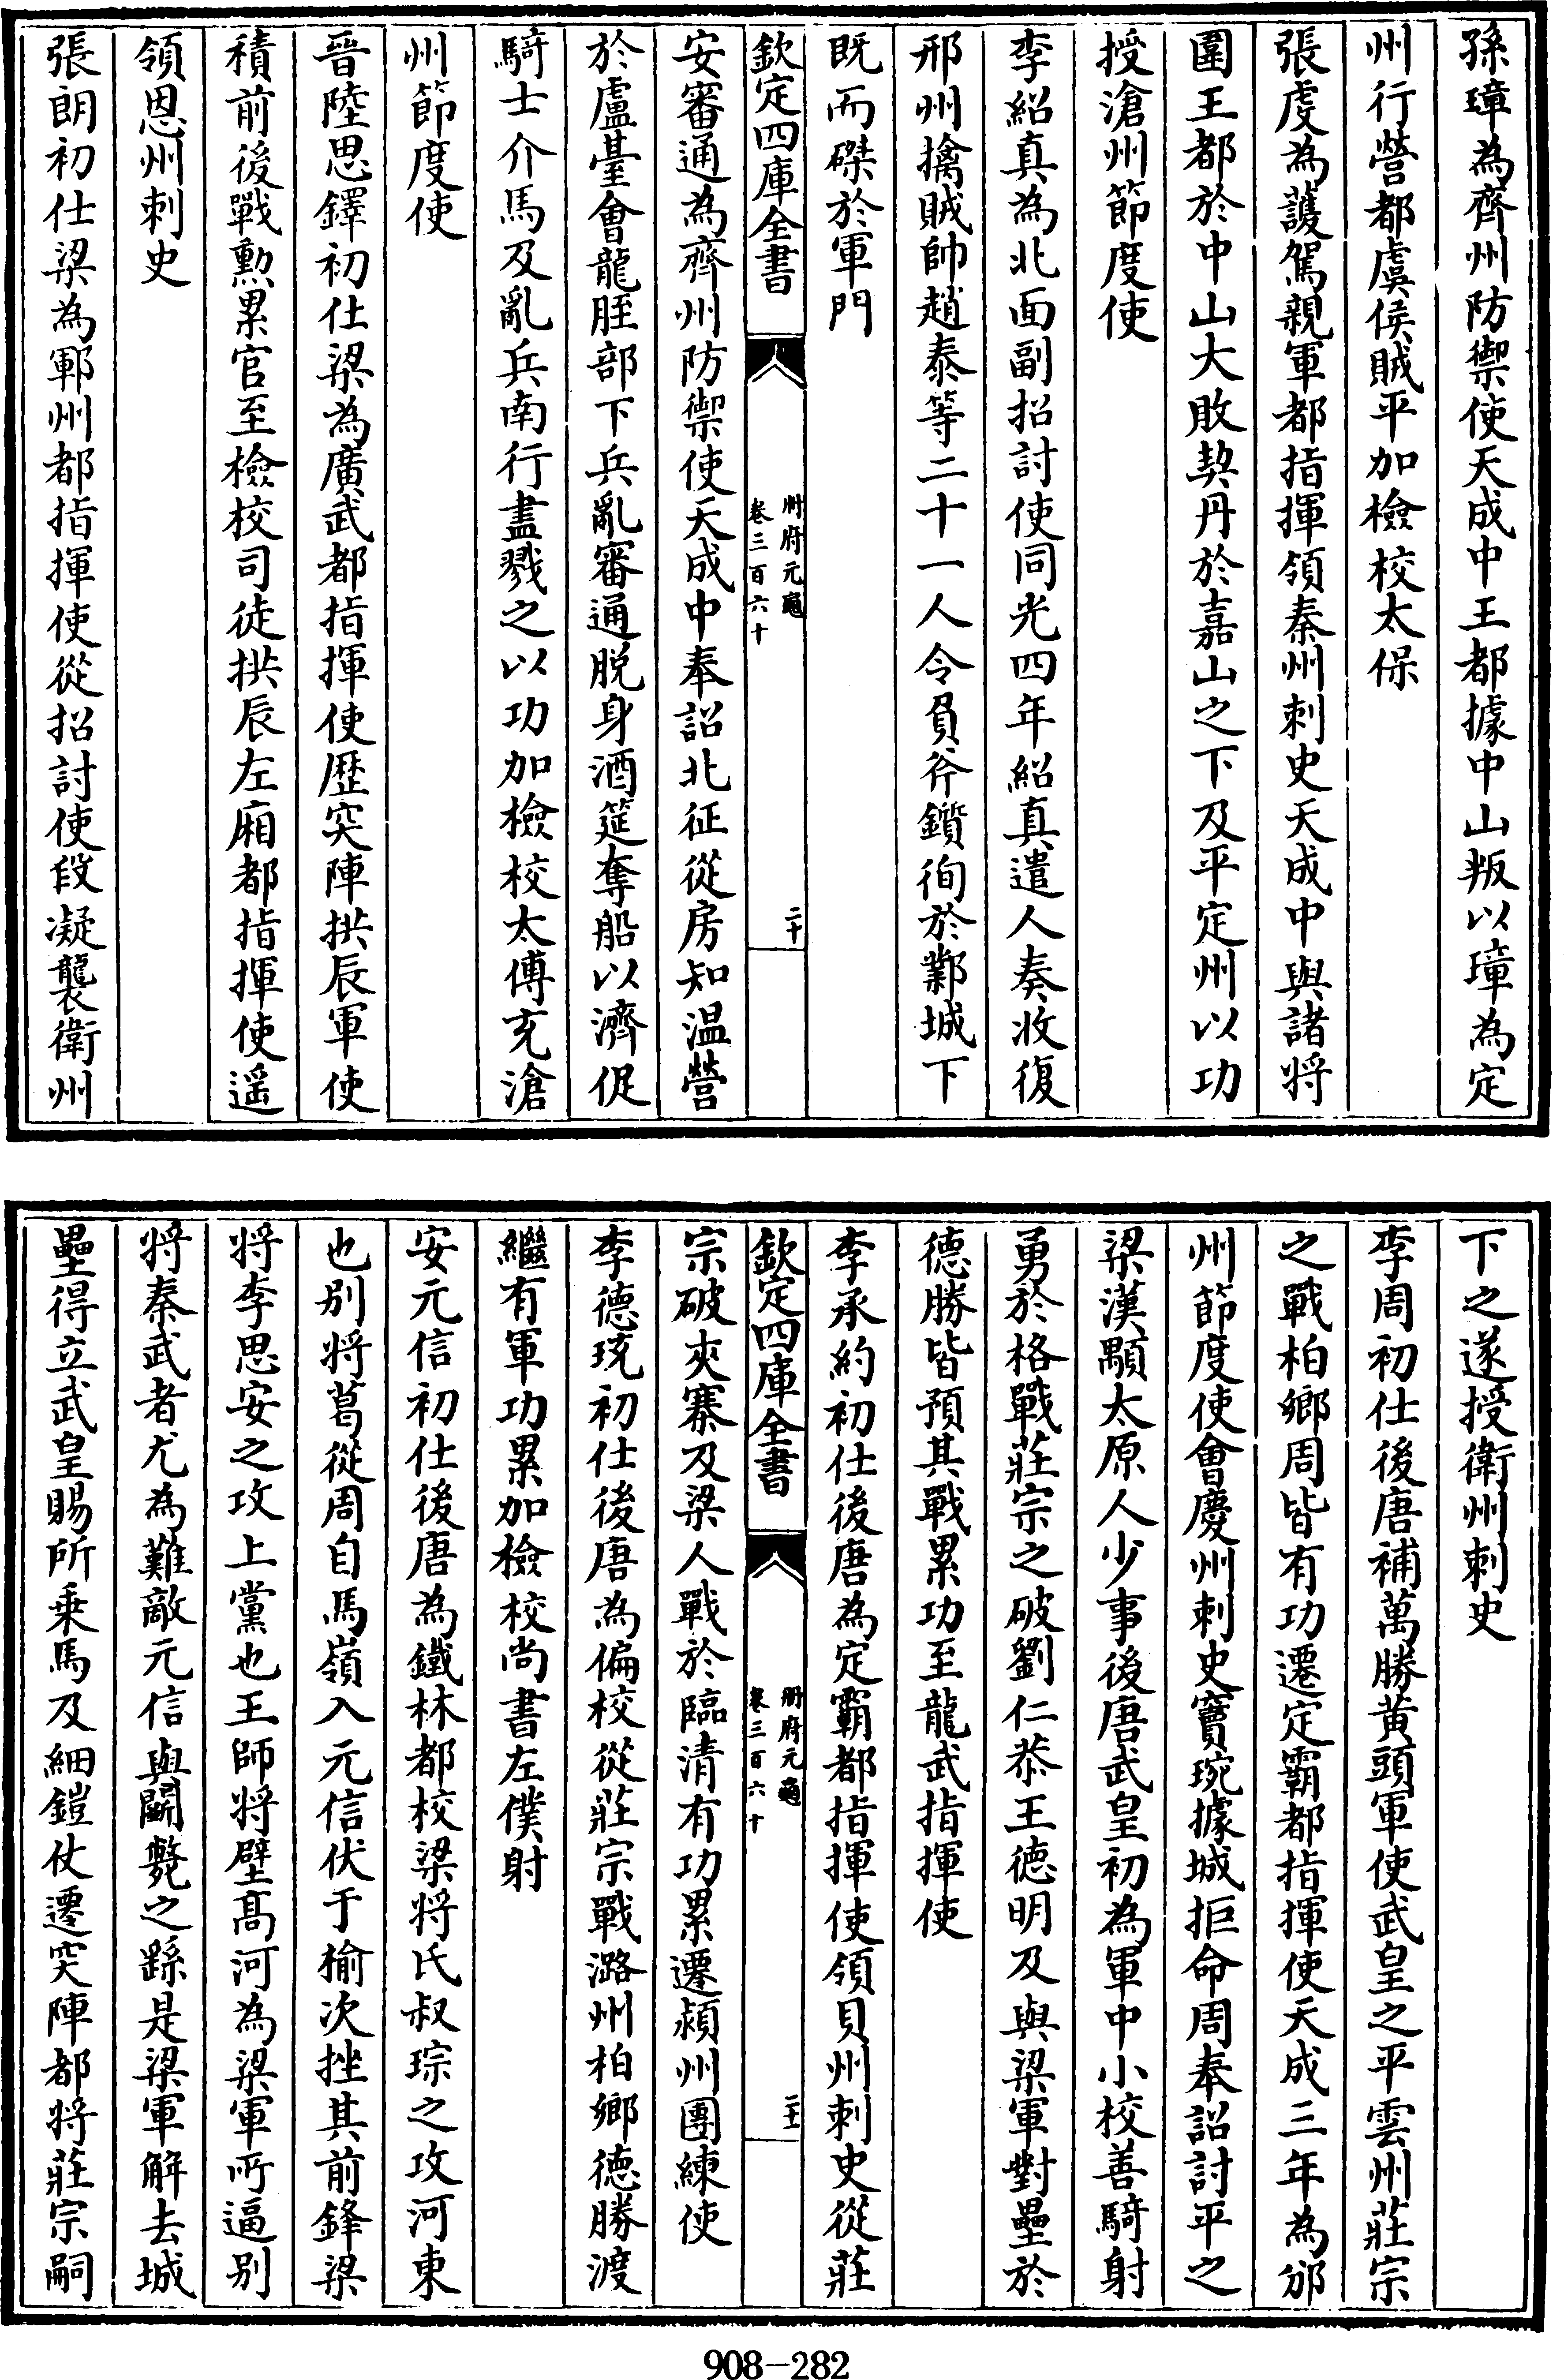 孫璋為齊州防禦使天成中王都據中山叛以璋為定
州行營都虞侯賊平加檢校太保
張虔為護駕親軍都指揮領秦州刺史天成中與諸將
圍王都於中山大敗契丹於嘉山之下及平定州以功
授滄州節度使
李紹真為北面副招討使同光四年紹真遣人奏收復
邢州擒賊帥趙泰等二十一人令負斧鑕徇於鄴城下
既而磔於軍門
欽定四庫全書
冊府元龜
卷三百六十
二十
安審通為齊州防禦使天成中奉詔北征從房知温營
於盧臺會龍脛部下兵亂審通脫身酒筵奪船以濟促
騎士介馬及亂兵南行盡戮之以功加檢校太傅充滄
州節度使
晉陸思鐸初仕梁為廣武都指揮使歷突陣拱辰軍使
積前後戰勲累官至檢校司徒拱辰左廂都指揮使遥
領恩州刺史
張朗初仕梁為鄆州都指揮使從招討使段凝襲衛州
下之遂授衛州刺史
李周初仕後唐補萬勝黄頭軍使武皇之平雲州莊宗
之戰柏鄉周皆有功遷定霸都指揮使天成三年為邠
州節度使會慶州刺史竇琬據城拒命周奉詔討平之
梁漢顒太原人少事後唐武皇初為軍中小校善騎射
勇於格戰莊宗之破劉仁恭王德明及與梁軍對壘於
德勝皆預其戰累功至龍武指揮使
李承約初仕後唐為定霸都指揮使領貝州刺史從莊
欽定四庫全書
冊府元龜
卷三百六十
二十一
宗破夾寨及梁人戰於臨清有功累遷潁州團練使
李德珫初仕後唐為偏校從莊宗戰潞州柏鄉德勝渡
繼有軍功累加檢校尚書左僕射
安元信初仕後唐為鐵林都校梁將氏叔琮之攻河東
也別將葛從周自馬嶺入元信伏于榆次挫其前鋒梁
將李思安之攻上黨也王師將壁髙河為梁軍所逼别
將秦武者尤為難敵元信與鬭斃之繇是梁軍解去城
壘得立武皇賜所乗馬及細鎧仗遷突陣都將莊宗嗣
908-282